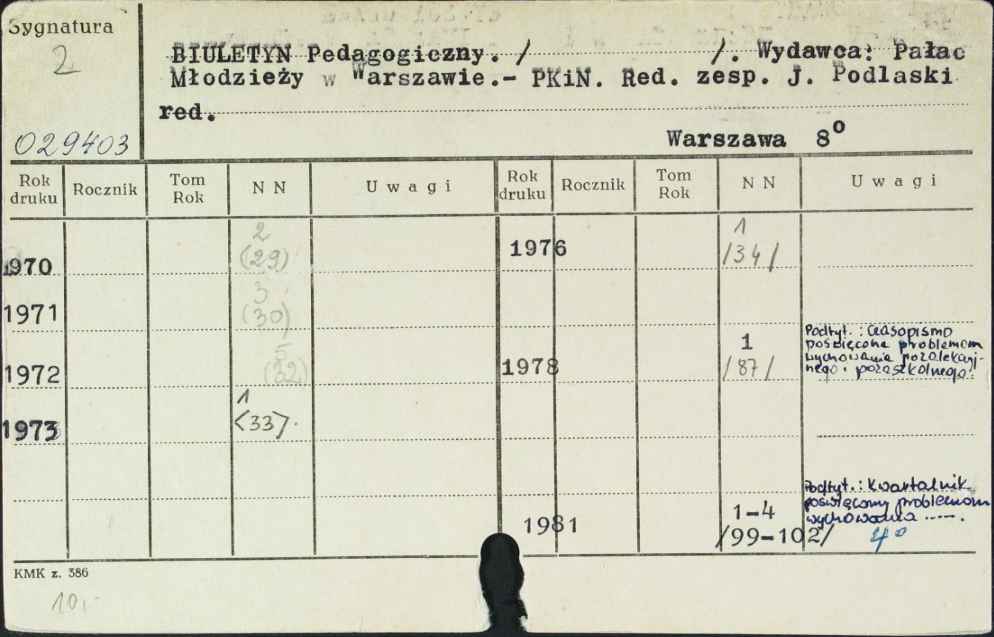 Sygnatura
2
029403
BIULETYN Pedagogiczny. / /. Wydawca: Pałac
Młodzieży w Warszawie.- PKiN. Red. zesp. J. Podlaski
red.
Warszawa 8⁰
Rok druku Rocznik Tom Rok N N Uwagi Rok druku Rocznik Tom Rok N N Uwagi
1970 2 (29)
1971 3 (30)
1972 5 (32)
1973 1 <33>.
1976 1 /34/
1978 1 /87/ Podtyt.: Czasopismo
poświęcone problemom
wychowania pozalekcyj-
nego i pozaszkolnego.
1981 1-4 /99-102/ Podtyt.: Kwartalnik
poświęcony problemom
wychowania .....
4⁰
KMK z. 386
10.-